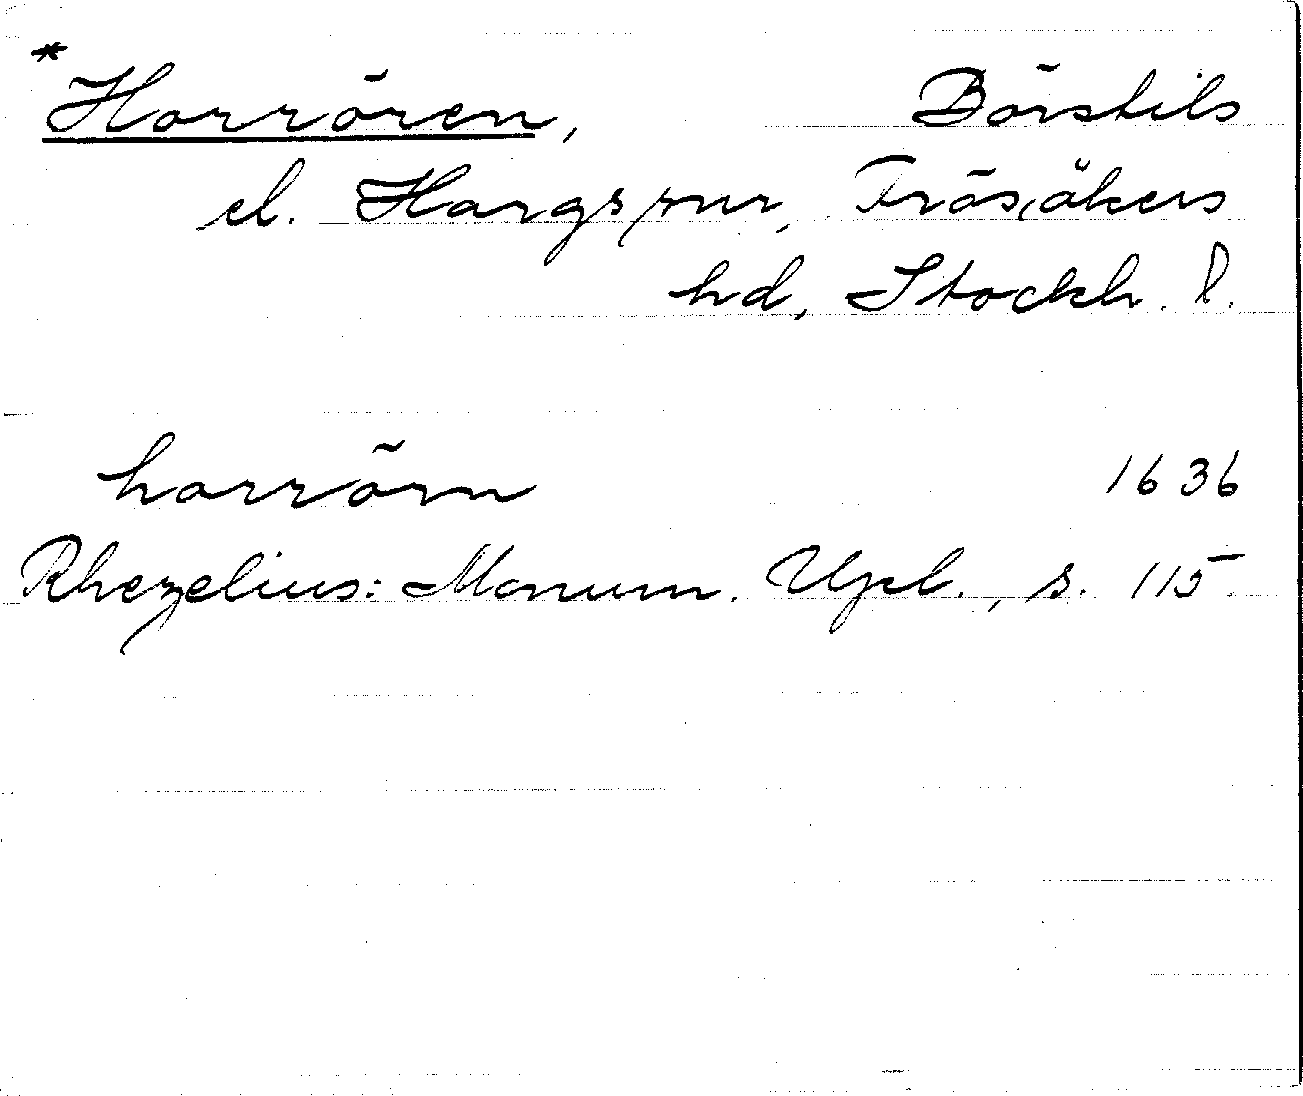 * Harrören, Börstils
el. Hargs snr, Frösåkers
hd, Stockh. l.
harrörn 1636
Rhezelius: Monum. Upl., s. 115